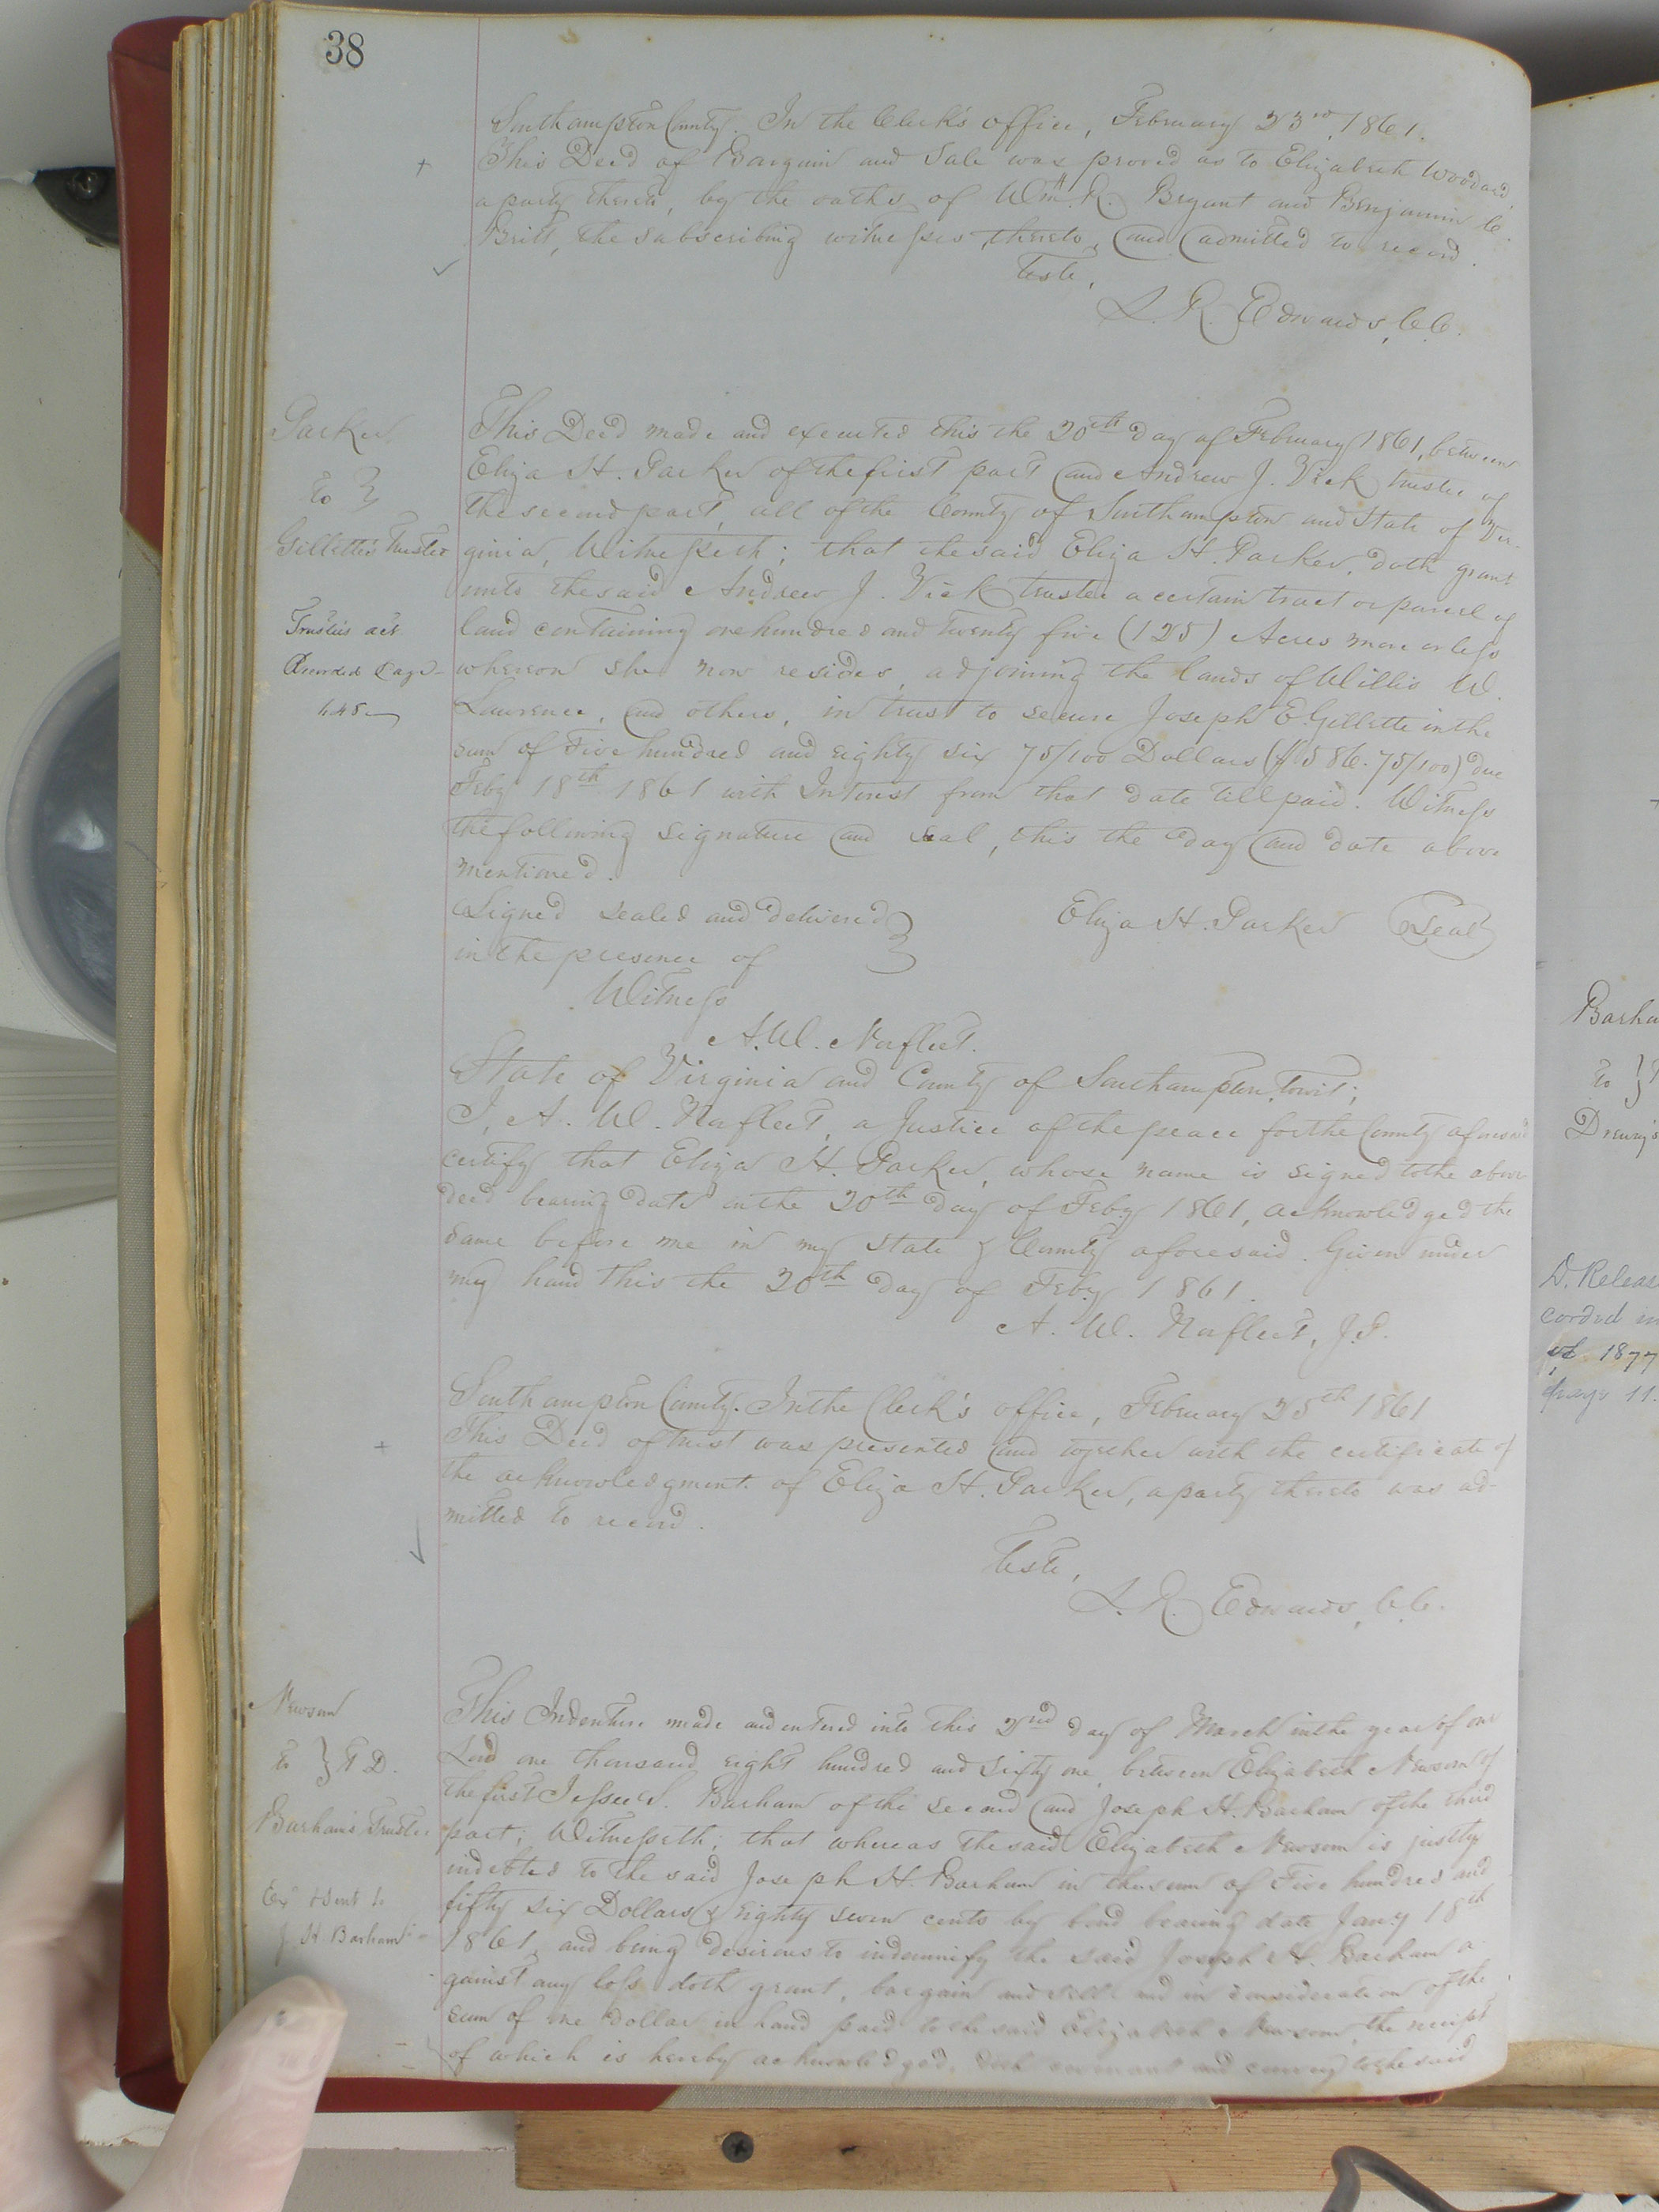 38
Southampton County. In the Clerk's office, February 23rd, 1861.
This Deed of Bargain and Sale was proved as to Elizabeth Woodard,
a party thereto, by the oaths of Wm. R. Bryant and Benjamin C.
Britt, the subscribing witnesses thereto, and admitted to record.
Teste,
L. R. Edwards, C.C.
Parker
to }
Gillette's Trustee
Trustees act
Recorded Page
This Deed made and executed this the 20th day of February 1861, between
Eliza H. Parker of the first part and Andrew J. Vick trustee of
the second part, all of the County of Southampton and State of Vir-
ginia, Witnesseth; that the said Eliza H. Parker, doth grant
unto the said Andrew J. Vick trustee a certain tract or parcel of
land containing one hundred and twenty five (125) Acres more or less
whereon she now resides, adjoining the lands of Willis W.
Lawrence, and others, in trust to secure Joseph E. Gillette in the
sum of Five hundred and eighty six 75/100 Dollars ($586.75/100) due
Feby 18th 1861 with Interest from that date till paid. Witness
the following signature and seal, this the day and date above
mentioned.
Signed sealed and delivered }
in the presence of
Eliza H. Parker (Seal)
Witness
A. W. Norfleet.
State of Virginia and County of Southampton, towit;
I, A. W. Norfleet, a Justice of the peace for the County aforesaid
certify that Eliza H. Parker, whose name is signed to the above
deed bearing date on the 20th day of Feby 1861, acknowledged the
same before me in my State & County aforesaid. Given under
my hand this the 20th day of Feby 1861.
A. W. Norfleet, J.P.
Southampton County. In the Clerk's office, February 25th 1861
This Deed of trust was presented and together with the certificate of
the acknowledgment of Eliza H. Parker, a party thereto was ad-
mitted to record.
Teste,
L. R. Edwards, C.C.
Newsom
to } T D.
Barham's Trustee
Exd & sent to
J. H. Barham
This Indenture made and entered into this 2nd day of March in the year of our
Lord one thousand eight hundred and sixty one, between Elizabeth Newsom of
the first Jesse S. Barham of the second and Joseph H. Barham of the third
part; Witnesseth; that whereas the said Elizabeth Newsom is justly
indebted to the said Joseph H. Barham in the sum of Five hundred and
fifty six Dollars & Eighty seven cents by bond bearing date Jany 18th
1861, and being desirous to indemnify the said Joseph H. Barham a-
gainst any loss doth grant, bargain and sell and in consideration of the
sum of one dollar in hand paid to the said Elizabeth Newsom, the receipt
of which is hereby acknowledged, doth covenant and convey to the said
Barha
to }
Drewry's
D. Releas
corded in
1877
page 11.